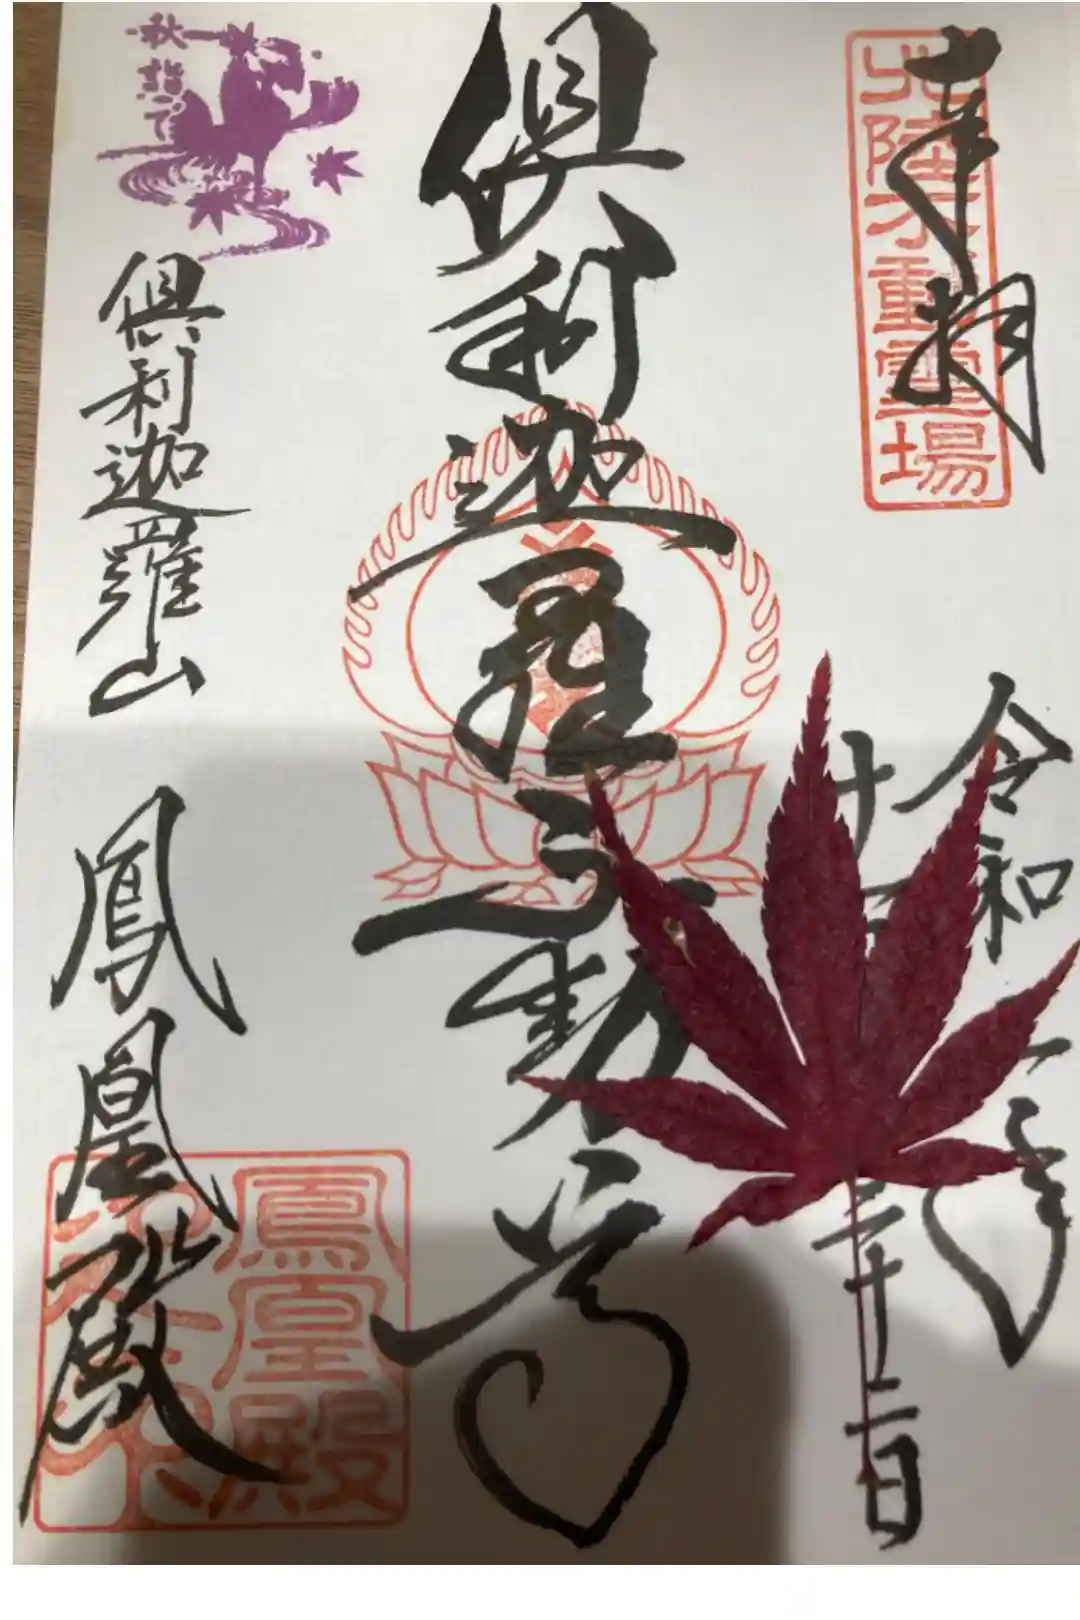 奉拝
北陸不動霊場
令和
年
十
二十二日
倶利迦羅不動寺
秋詣で
倶利迦羅山 鳳凰殿
鳳凰殿